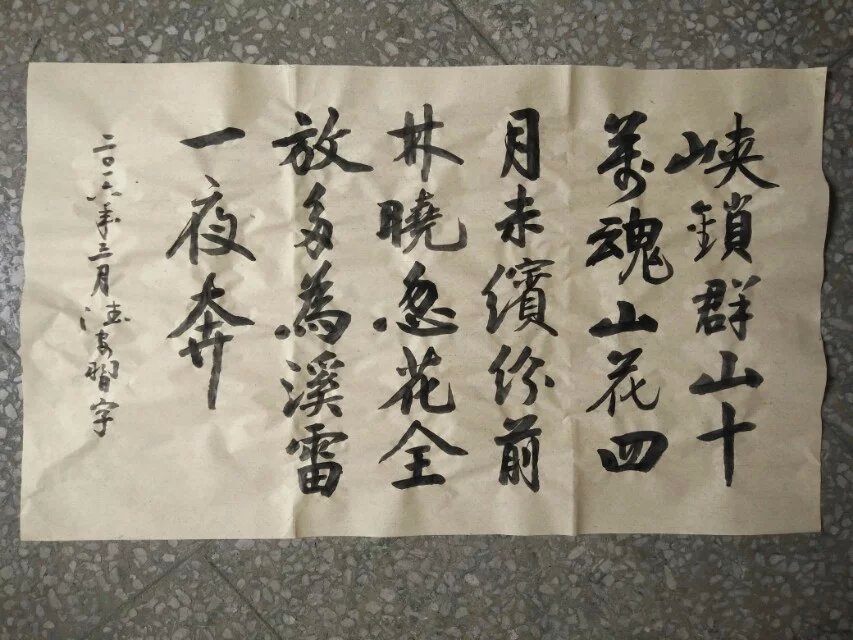 峡鎖群山十
萬魂山花四
月未繽纷前
林曉忽花全
放多為溪雷
一夜奔
二〇一六年三月
習字